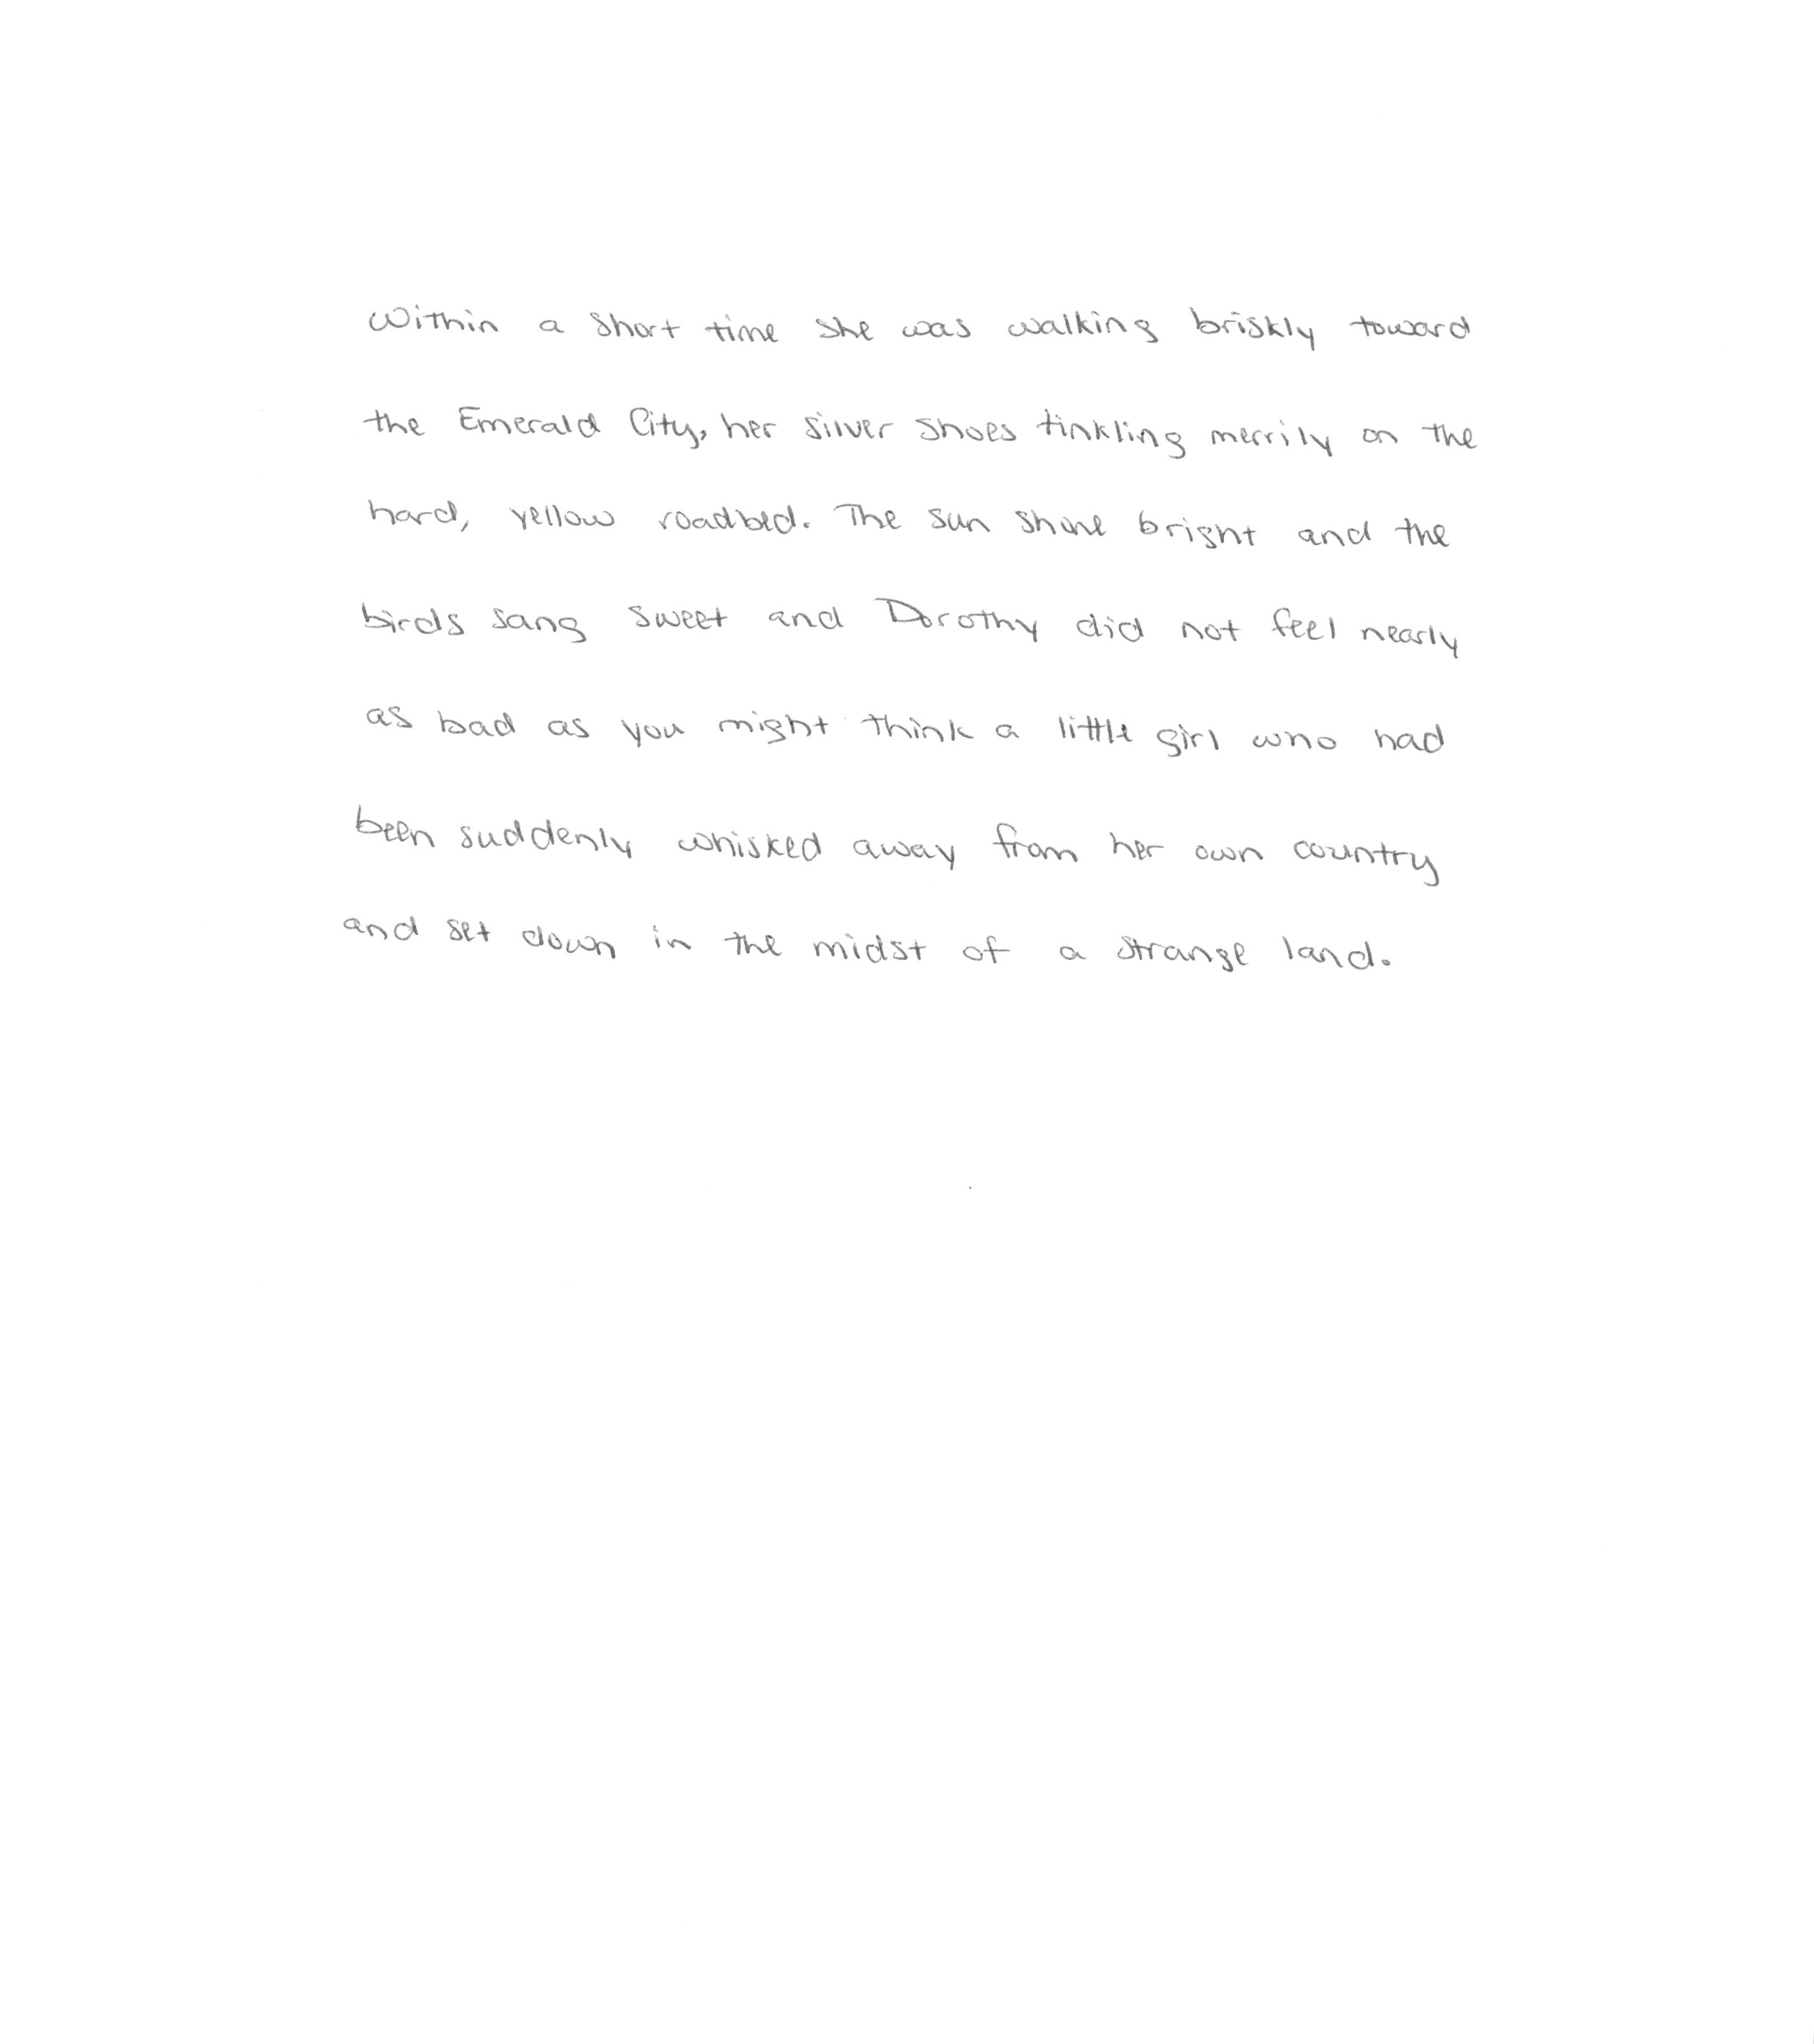 Within a short time she was walking briskly toward
the Emerald City, her silver shoes tinkling merrily on the
hard, yellow roadbed. The sun shone bright and the
birds sang sweet and Dorothy did not feel nearly
as bad as you might think a little girl who had
been suddenly whisked away from her own country
and set down in the midst of a strange land.